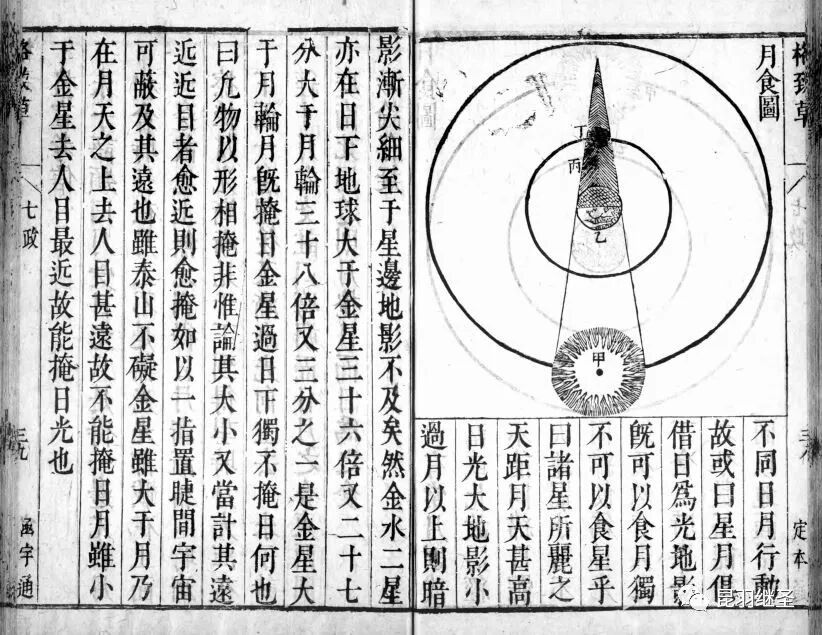 格致草
七政
三八
定本
月食圖
丁
丙
乙
甲
不同日月行動
故或曰星月俱
借日爲光地影
旣可以食月獨
不可以食星乎
曰諸星所麗之
天距月天甚高
日光大地影小
過月以上則暗
影漸尖細至于星邊地影不及矣然金水二星
亦在日下地球大于金星三十六倍又二十七
分大于月輪三十八倍又三分之一是金星大
于月輪月旣掩日金星過日下獨不掩日何也
曰凢物以形相掩非惟論其大小又當計其遠
近近目者愈近則愈掩如以一指置睫間宇宙
可蔽及其遠也雖泰山不礙金星雖大于月乃
在月天之上去人目甚遠故不能掩日月雖小
于金星去人目最近故能掩日光也
格致草
七政
三九
函宇通
昆羽继圣